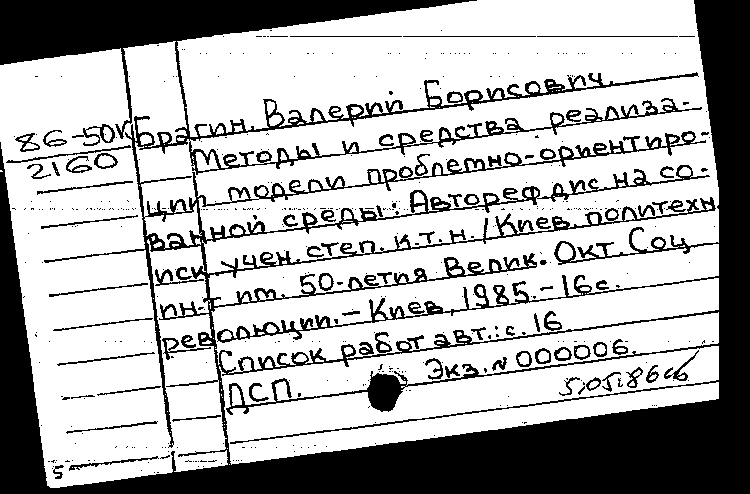 86-50К Брагин, Валерий Борисович.
2160 Методы и средства реализа-
ции модели проблемно-ориентиро-
ванной среды: Автореф.дис.на со-
иск.учен.степ.к.т.н./Киев.политехн.
ин-т им.50-летия Велик.Окт.Соц
революции.-Киев,1985.-16с.
Список работ авт.:с.16
ДСП. Экз.N000006.
5.05.86
5